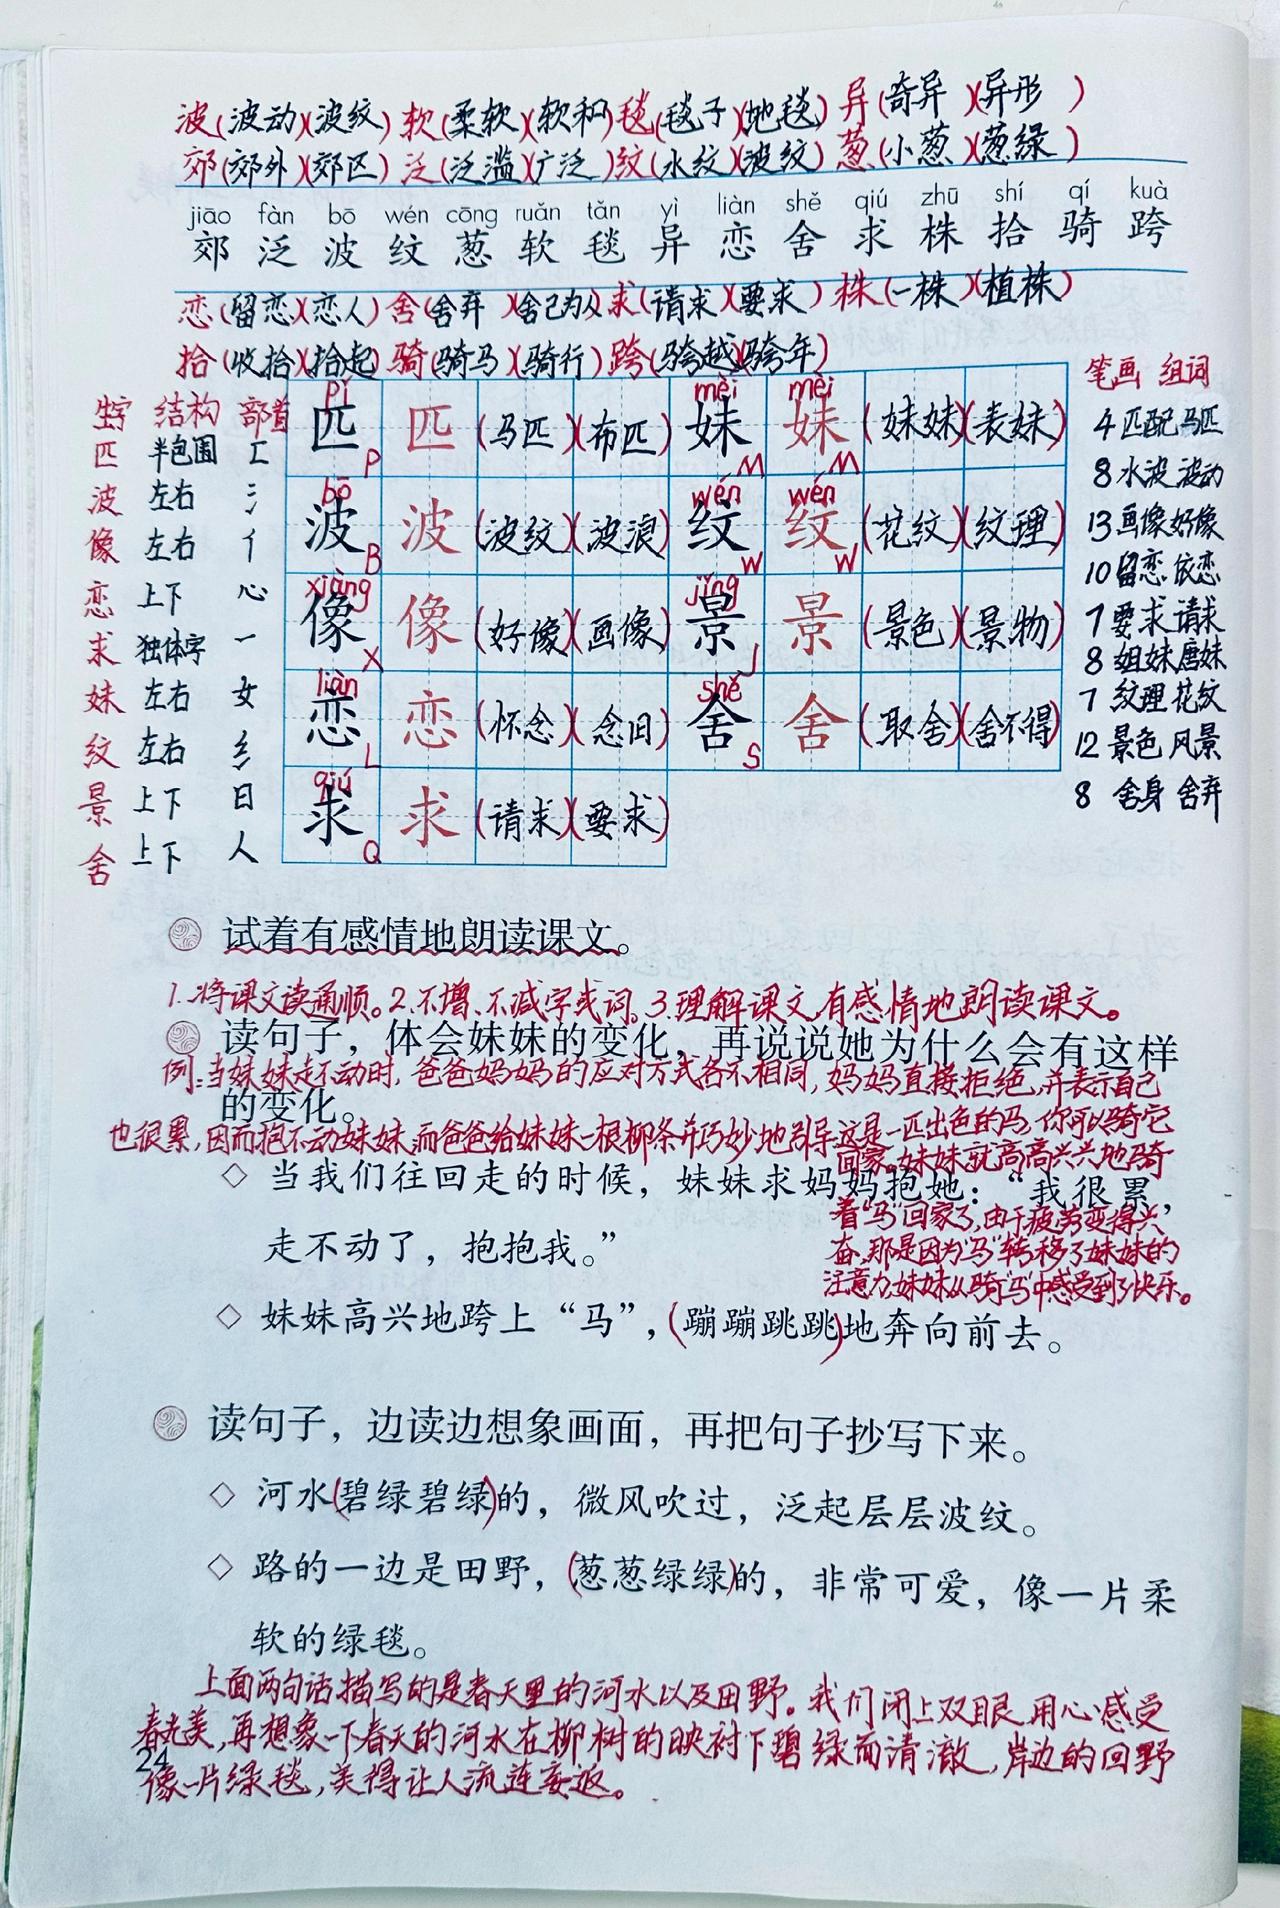 波(波动)(波纹) 软(柔软)(软和) 毯(毯子)(地毯) 异(奇异)(异形)
郊(郊外)(郊区) 泛(泛滥)(广泛) 纹(水纹)(波纹) 葱(小葱)(葱绿)
jiāo fàn bō wén cōng ruǎn tǎn yì liàn shě qiú zhū shí qí kuà
郊 泛 波 纹 葱 软 毯 异 恋 舍 求 株 拾 骑 跨
恋(留恋)(恋人) 舍(舍弃)(舍己为人) 求(请求)(要求) 株(一株)(植株)
拾(收拾)(拾起) 骑(骑马)(骑行) 跨(跨越)(跨年)
生字 结构 部首 笔画 组词
pǐ mèi mèi
匹 半包围 匚 匹 P 匹 (马匹)(布匹) 妹 M 妹 M (妹妹)(表妹) 4 匹配 马匹
bō wén wén
波 左右 氵 波 B 波 (波纹)(波浪) 纹 W 纹 W (花纹)(纹理) 8 水波 波动
xiàng jǐng
像 左右 亻 像 X 像 (好像)(画像) 景 J 景 (景色)(景物) 13 画像 好像
liàn shě
恋 上下 心 恋 L 恋 (怀念)(念旧) 舍 S 舍 (取舍)(舍不得) 10 留恋 依恋
qiú
求 独体字 一 求 Q 求 (请求)(要求) 7 要求 请求
妹 左右 女 8 姐妹 唐妹
纹 左右 纟 7 纹理 花纹
景 上下 日 12 景色 风景
舍 上下 人 8 舍身 舍弃
试着有感情地朗读课文。
1.将课文读通顺。2.不增、不减字或词。3.理解课文,有感情地朗读课文。
读句子，体会妹妹的变化，再说说她为什么会有这样
例:当妹妹走不动时,爸爸妈妈的应对方式各不相同,妈妈直接拒绝,并表示自己
的变化。
也很累,因而抱不动妹妹,而爸爸给妹妹一根柳条并巧妙地引导:这是一匹出色的马,你可以骑它
回家。妹妹就高高兴兴地骑
◇ 当我们往回走的时候，妹妹求妈妈抱她：“我很累，
着“马”回家了,由于疲劳变得兴
走不动了，抱抱我。”
奋,那是因为“马”转移了妹妹的
注意力,妹妹从骑“马”中感受到了快乐。
◇ 妹妹高兴地跨上“马”，(蹦蹦跳跳)地奔向前去。
读句子，边读边想象画面，再把句子抄写下来。
◇ 河水(碧绿碧绿)的，微风吹过，泛起层层波纹。
◇ 路的一边是田野，(葱葱绿绿)的，非常可爱，像一片柔
软的绿毯。
上面两句话描写的是春天里的河水以及田野。我们闭上双眼,用心感受
春光美,再想象一下春天的河水在柳树的映衬下碧绿而清澈,岸边的田野
24
像一片绿毯,美得让人流连忘返。